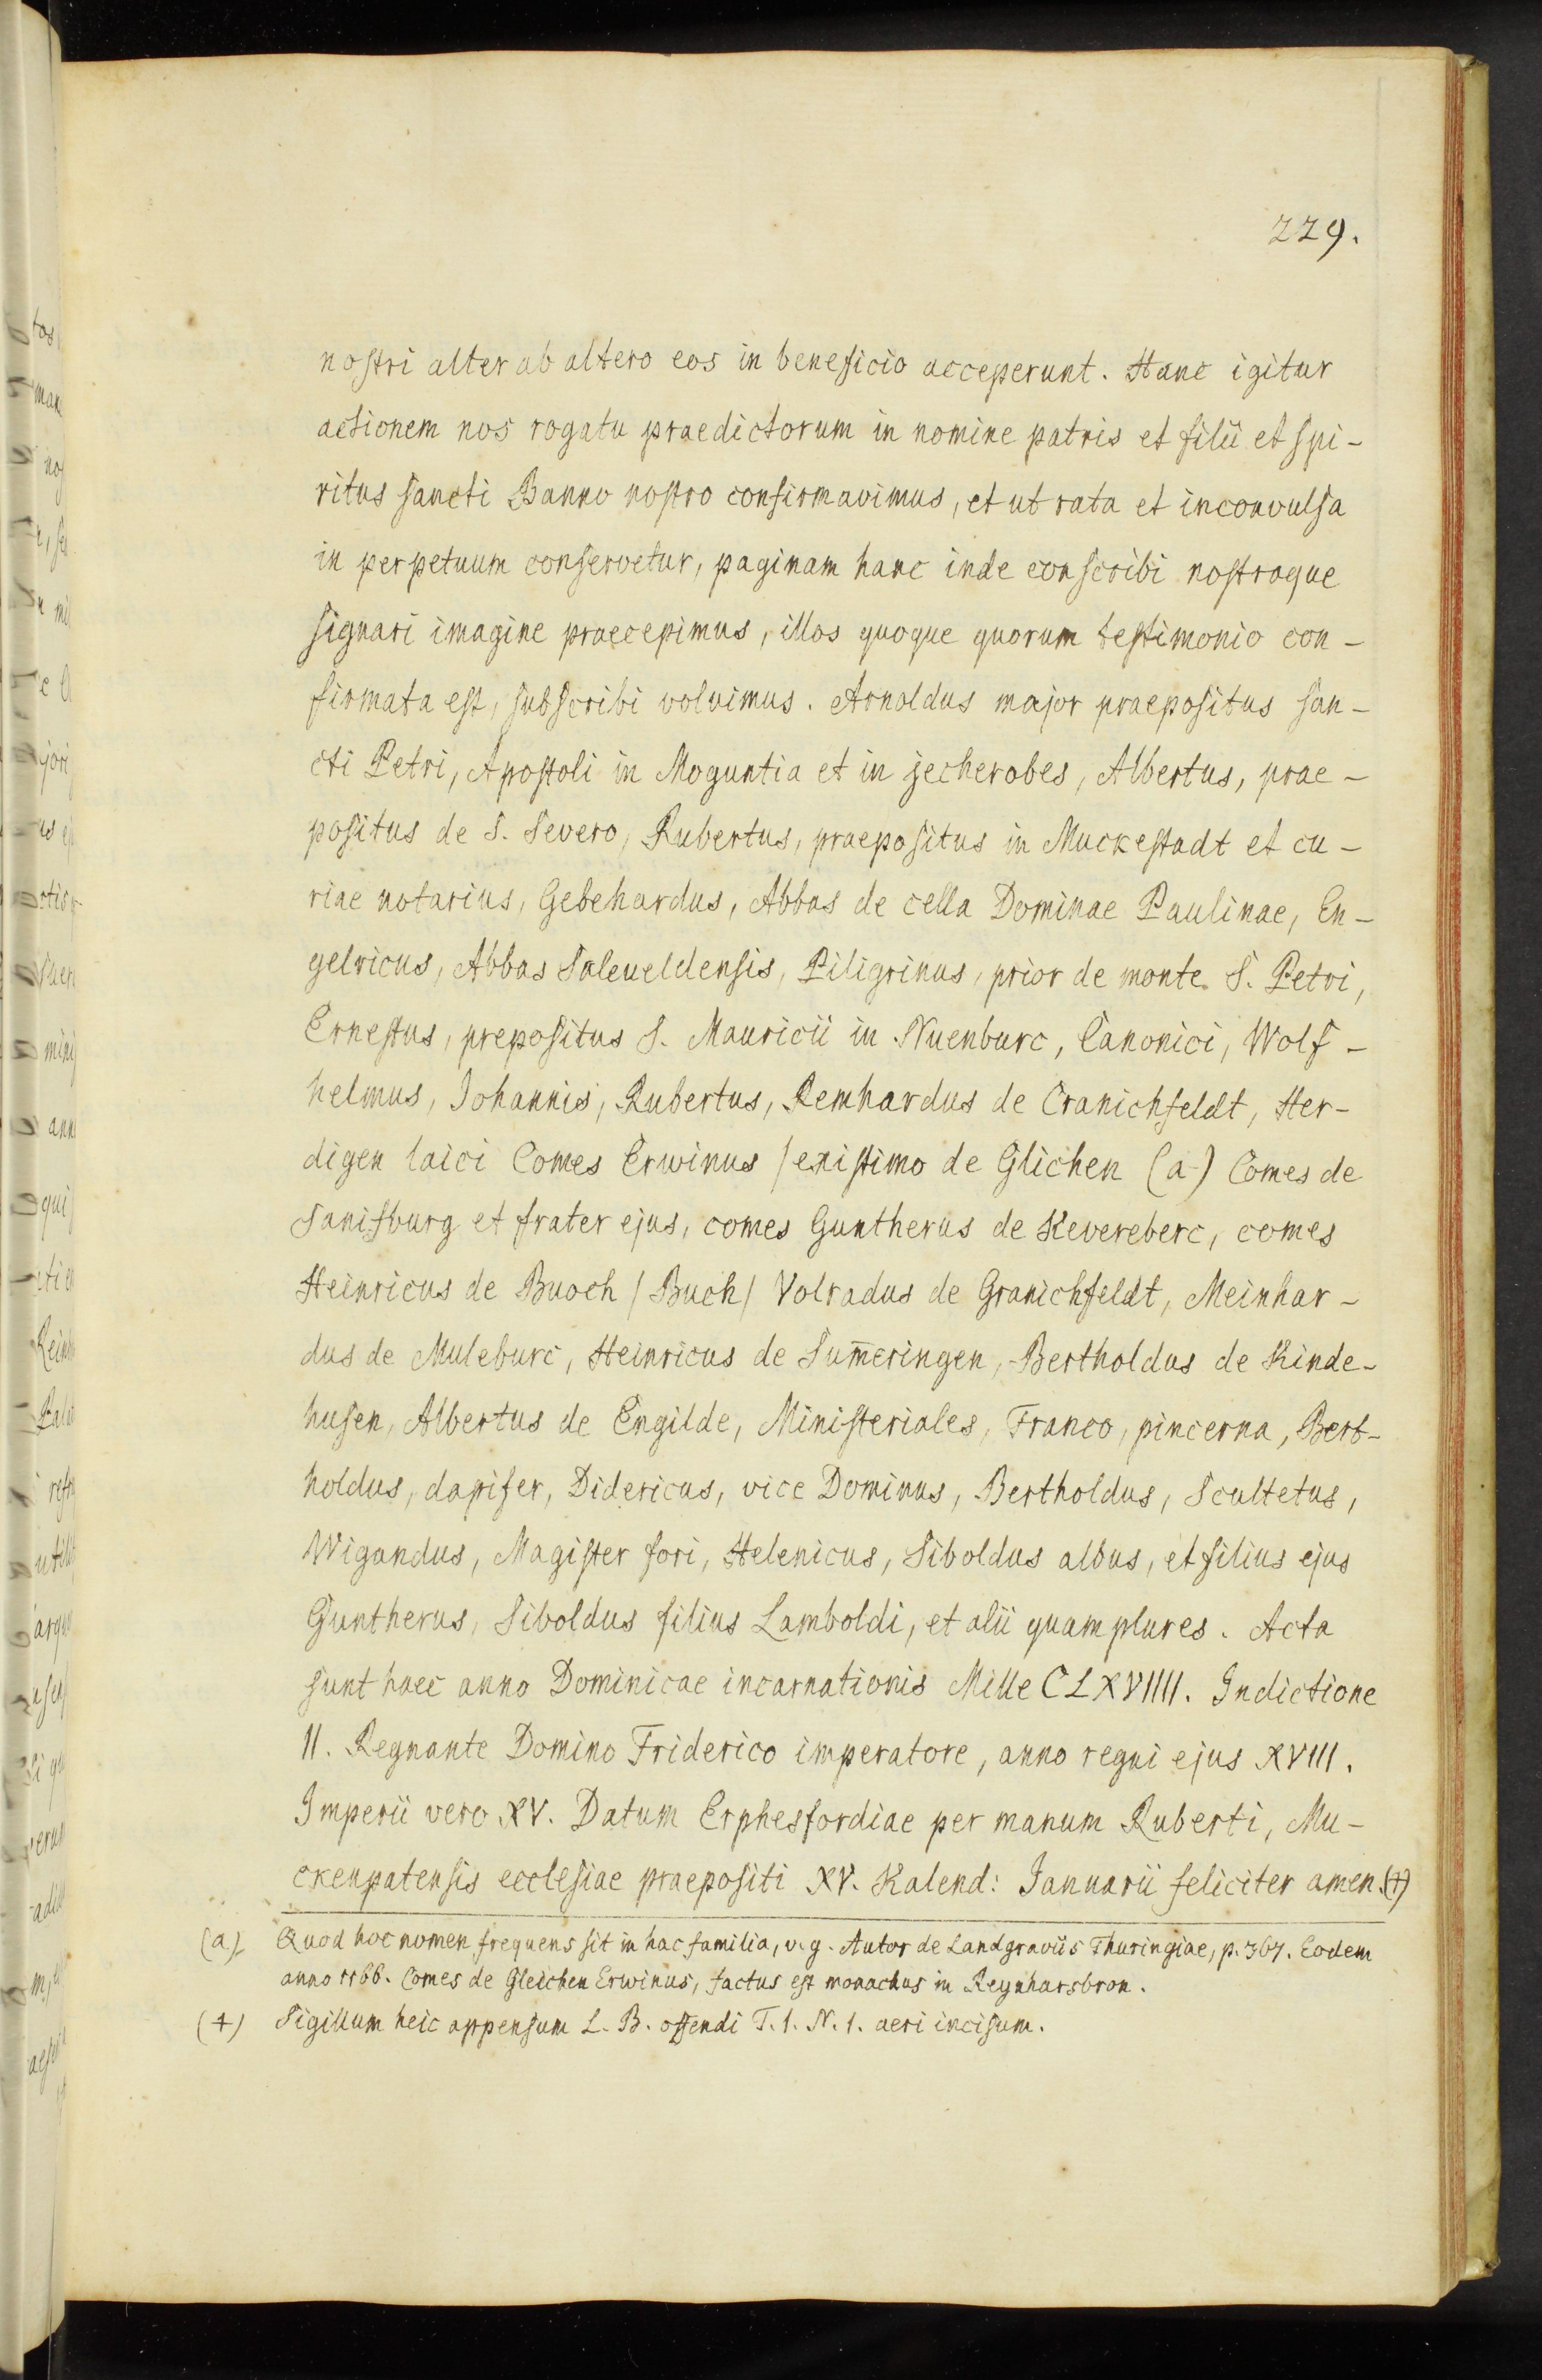 229.
nostri alter ab altero eos in beneficio acceperunt. Hanc igitur
actionem nos rogatu praedictorum in nomine patris et filii et spi-
ritus sancti Banno nostro confirmavimus, et ut rata et inconvulsa
in perpetuum conservetur, paginam hanc inde conscribi nostraque
signari imagine praecepimus, illos quoque quorum testimonio con-
firmata est, subscribi voluimus. Arnoldus major praepositus san-
cti Petri, Apostoli in Moguntia et in jecherobes, Albertus, prae-
positus de S. Severo, Rubertus, praepositus in Muckestadt et cu-
riae notarius, Gebehardus, Abbas de cella Dominae Paulinae, En-
gelricus, Abbas Saleueldensis, Piligrinus, prior de monte S. Petri,
Ernestus, prepositus S. Mauricii in Nuenburc, Canonici, Wolf-
helmus, Johannis, Rubertus, Remhardus de Cranichfeldt, Her-
digen laici Comes Erwinus /existimo de Glichen (a) Comes de
Sanisburg et frater ejus, comes Guntherus de Kevereberc, comes
Heinricus de Buoch /Buch/ Volradus de Granichfeldt, Meinhar-
dus de Muleburc, Heinricus de Sum̄eringen, Bertholdus de Kinde-
husen, Albertus de Engilde, Ministeriales, Franco, pincerna, Bert-
holdus, dapifer, Didericus, vice Dominus, Bertholdus, Scultetus,
Wigandus, Magister fori, Helenicus, Siboldus albus, et filius ejus
Guntherus, Siboldus filius Lamboldi, et alii quam plures. Acta
sunt haec anno Dominicae incarnationis Mille CLXVIIII. Indictione
II. Regnante Domino Friderico imperatore, anno regni ejus XVIII.
Imperii vero XV. Datum Erphesfordiae per manum Ruberti, Mu-
ckenpatensis ecclesiae praepositi XV. Kalend: Januarii feliciter amen.(+)
(a) Quod hoc nomen frequens sit in hac familia, v. g. Autor de Landgraviis Thuringiae, p. 367. Eodem
anno 1166. Comes de Gleichen Erwinus, factus est monachus in Reynharsbron.
(+) Sigillum heic appensum L. B. ostendi T. 1. N. 1. aeri incisum.